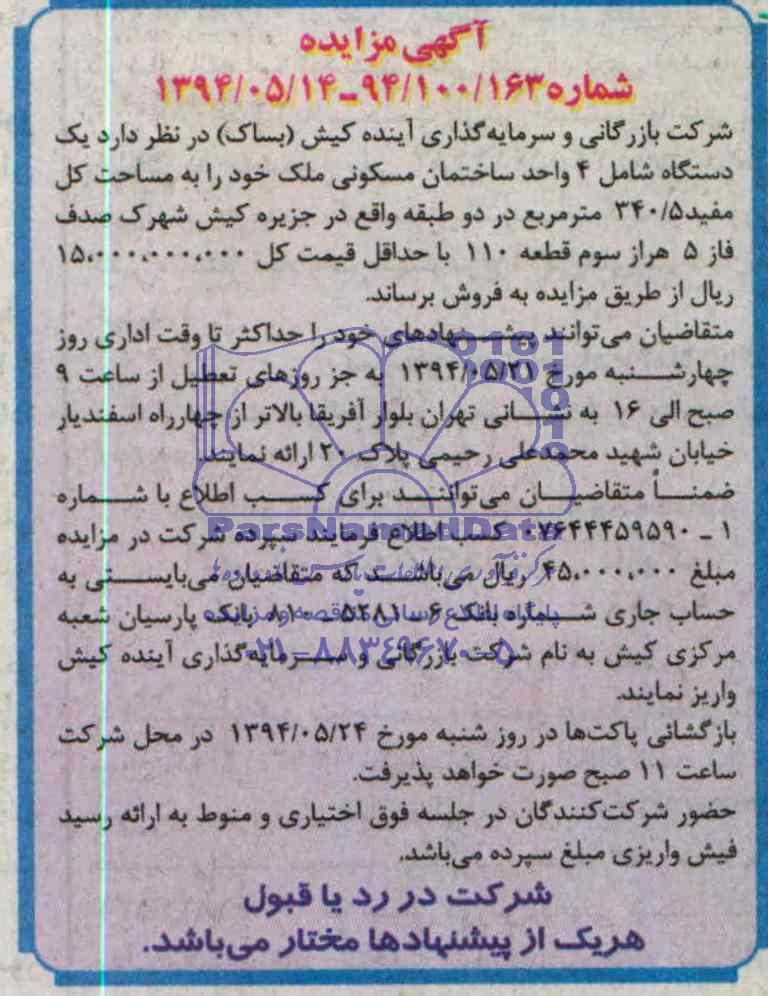 آگهی مزایده
شماره ۹۴/۱۰۰/۱۶۳-۱۳۹۴/۰۵/۱۴
شرکت بازرگانی و سرمایه‌گذاری آینده کیش (بساک) در نظر دارد یک
دستگاه شامل ۴ واحد ساختمان مسکونی ملک خود را به مساحت کل
مفید ۳۴۰/۵ مترمربع در دو طبقه واقع در جزیره کیش شهرک صدف
فاز ۵ هراز سوم قطعه ۱۱۰ با حداقل قیمت کل ۱۵،۰۰۰،۰۰۰،۰۰۰
ریال از طریق مزایده به فروش برساند.
متقاضیان می‌توانند پیشنهادهای خود را حداکثر تا وقت اداری روز
چهارشنبه مورخ ۱۳۹۴/۰۵/۲۱ به جز روزهای تعطیل از ساعت ۹
صبح الی ۱۶ به نشانی تهران بلوار آفریقا بالاتر از چهارراه اسفندیار
خیابان شهید محمدعلی رحیمی پلاک ۲۰ ارائه نمایند.
ضمناً متقاضیان می‌توانند برای کسب اطلاع با شماره
۱ - ۰۷۶۴۴۴۵۹۵۹۰ کسب اطلاع فرمایند سپرده شرکت در مزایده
مبلغ ۴۵،۰۰۰،۰۰۰ ریال می‌باشد که متقاضیان می‌بایستی به
حساب جاری شماره بانک ۶-۵۲۸۱-۸۱۰ بانک پارسیان شعبه
مرکزی کیش به نام شرکت بازرگانی و سرمایه‌گذاری آینده کیش
واریز نمایند.
بازگشائی پاکت‌ها در روز شنبه مورخ ۱۳۹۴/۰۵/۲۴ در محل شرکت
ساعت ۱۱ صبح صورت خواهد پذیرفت.
حضور شرکت‌کنندگان در جلسه فوق اختیاری و منوط به ارائه رسید
فیش واریزی مبلغ سپرده می‌باشد.
شرکت در رد یا قبول
هریک از پیشنهادها مختار می‌باشد.
ParsNamadData
۰۲۱-۸۸۳۴۹۶۷۰-۵